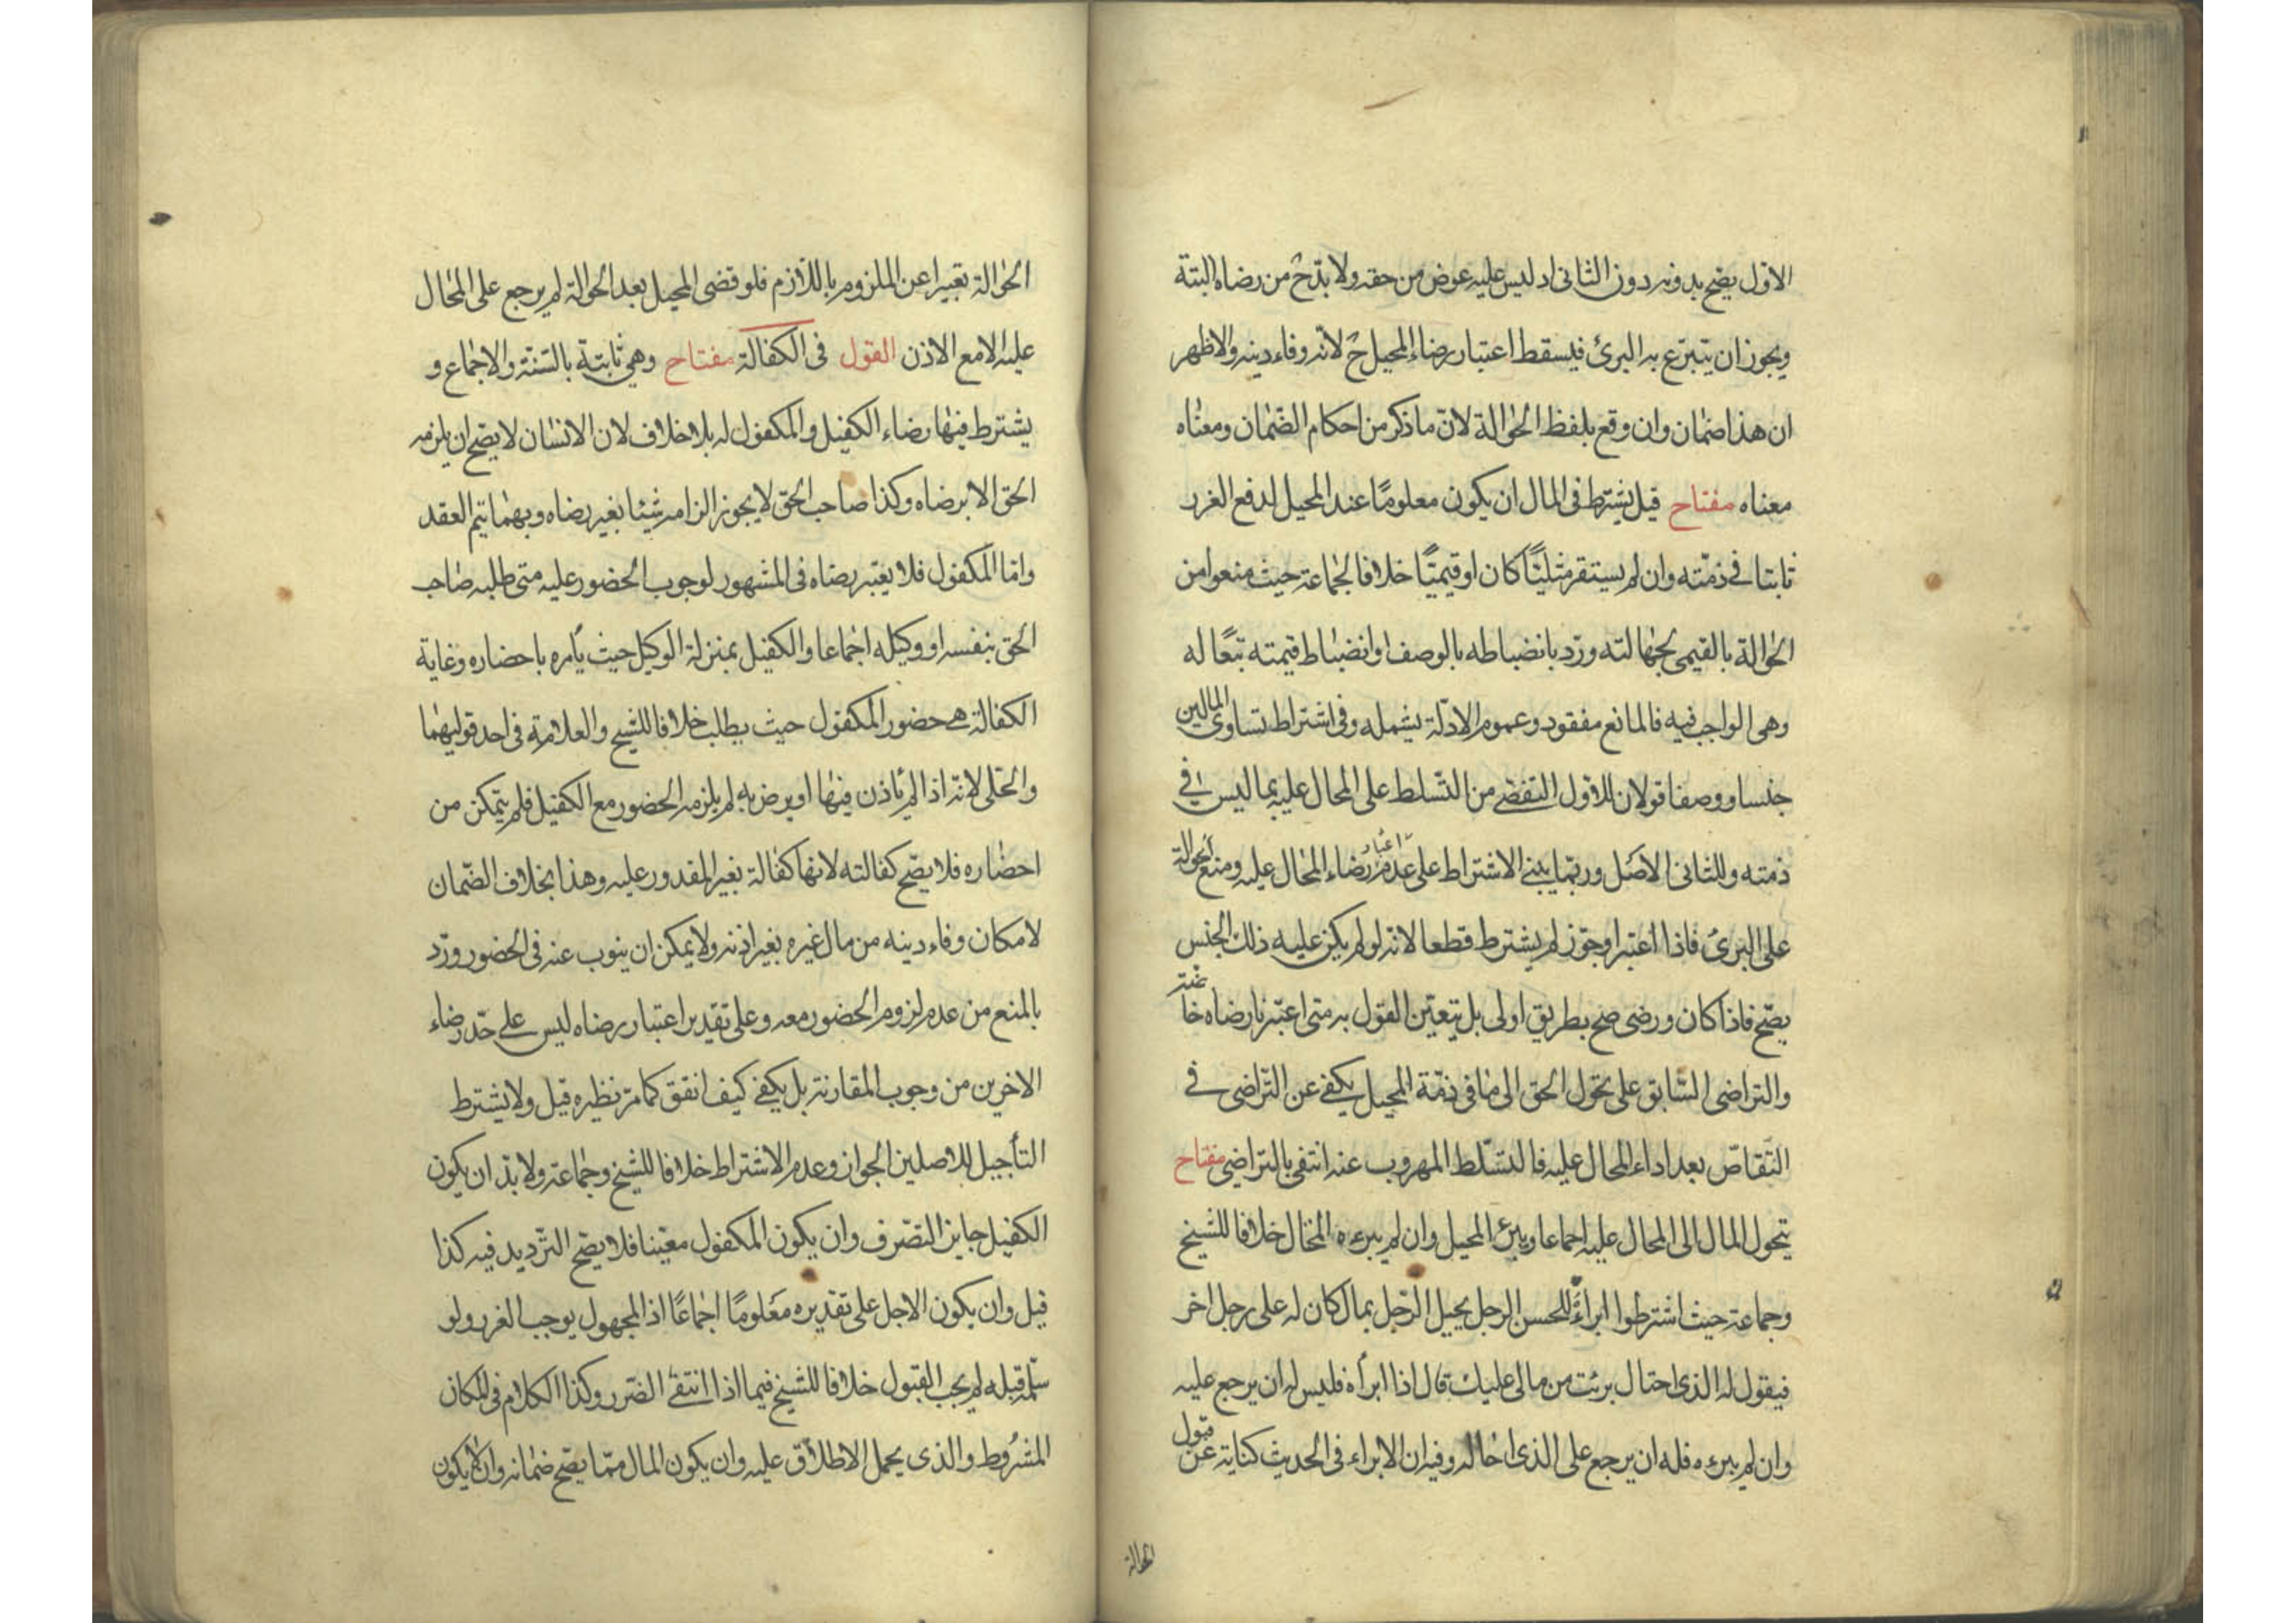 الاوّل يصح بدونه دون الثانى اذ ليس عليه عوض من حقه ولا بدّ ح من رضاه البتة
ويجوز ان يتبرّع به البرئ فيسقط اعتبار رضاء المحيل ح لانه وفاء دينه والاظهر
ان هذا ضمان وان وقع بلفظ الحوالة لانّ ما ذكر من احكام الضّمان ومعناه
معناه مفتاح قيل يشترط فى المال ان يكون معلومًا عند المحيل لدفع الغرر
ثابتا فى ذمّته وان لم يستقر مثليّا كان او قيميّا خلافا لجماعة حيث منعوا من
الحوالة بالقيمى لجهالته وردّ بانضباطه بالوصف وانضباط قيمته تبعًا له
وهى الواجب فيه فالمانع مفقود وعموم الادلّة يشمله وفى اشتراط تساوى المالين
جنسا ووصفا قولان للاوّل التفصّى من التسلط على المحال عليه بما ليس فى
ذمته وللثانى الاصل وربّما يبنى الاشتراط على عدم اعتبار رضاء المحال عليه ومنع الحوالة
على البرئ فاذا اعتبر او جوّز لم يشترط قطعا لانه لو لم يكن عليه ذلك الجنس
يصحّ فاذا كان ورضى صح بطريق اولى بل يتعيّن القول به متى اعتبرنا رضاه خا
والتراضى السّابق على تحوّل الحق الى ما فى ذمّة المحيل يكفى عن التّراضى فى
التقاصّ بعد اداء المحال عليه فالتسّلط المهروب عنه انتفى بالتراضى مفتاح
يتحول المال الى المحال عليه اجماعا ويبرئ المحيل وان لم يبرءه المحال خلافا للشيخ
وجماعة حيث اشترطوا ابراءه للحسن الرجل يحيل الرّجل بمال كان له على رجل اخر
فيقول له الذى احتال برئت من مالى عليك قال اذا ابرأه فليس له ان يرجع عليه
وان لم يبرءه فله ان يرجع على الذى احاله وفيه ان الابراء فى الحديث كناية عن قبول
الحوالة
الحوالة تعبيرا عن الملزوم باللازم فلو قضى المحيل بعد الحوالة لم يرجع على المحال
عليه الا مع الاذن القول فى الكفالة مفتاح وهى ثابتة بالسّنة والاجماع و
يشترط فيها رضاء الكفيل والمكفول له بلا خلاف لان الانسان لا يصح ان يلزمه
الحق الا برضاه وكذا صاحب الحقّ لا يجوز الزامه شيئا بغير رضاه وبهما يتم العقد
وامّا المكفول فلا يعتبر رضاه فى المشهور لوجوب الحضور عليه متى طلبه صاحب
الحق بنفسه او وكيله اجماعا والكفيل بمنزلة الوكيل حيث يأمره باحضاره وغاية
الكفالة هى حضور المكفول حيث يطلب خلافا للشيخ والعلامة فى احد قوليهما
والحلّى لانه اذا لم يأذن فيها او يرض به لم يلزمه الحضور مع الكفيل فلم يتمكن من
احضاره فلا يصّح كفالته لانها كفالة بغير المقدور عليه وهذا بخلاف الضّمان
لامكان وفاء دينه من مال غيره بغير اذنه ولا يمكن ان ينوب عنه فى الحضور وردّ
بالمنع من عدم لزوم الحضور معه وعلى تقدير اعتبار رضاه ليس على حدّ رضاء
الاخرين من وجوب المقارنة بل يكفى كيف اتفق كما مرّ نظيره قيل ولا يشترط
التأجيل للاصلين الجواز وعدم الاشتراط خلافا للشيخ وجماعة ولا بدّ ان يكون
الكفيل جايز التصّرف وان يكون المكفول معيّنا فلا يصّح التّرديد فيه كذا
قيل وان يكون الاجل على تقديره معلومًا اجماعًا اذ المجهول يوجب الغرر ولو
سلّمه قبله لم يجب القبول خلافا للشيخ فيما اذا انتفى الضّرر وكذا الكلام فى المكان
المشروط والذى يحمل الاطلاق عليه وان يكون المال ممّا يصّح ضمانه وان لا يكون